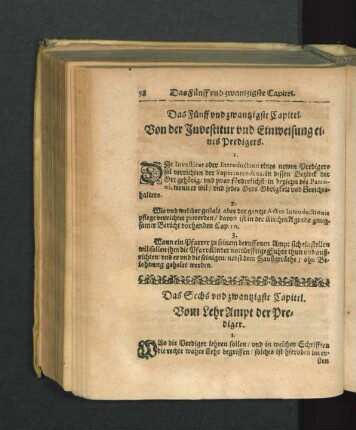 58 Das Fünff vnd zwantzigste Capitel.
Das Fünff vnd zwantzigste Capitel.
Von der Investitur vnd Einweisung ei-
nes Predigers.
1.
Die Investitur oder Introduction eines newen Predigers
sol verrichten der Superintendens, in dessen Bezirck der
Ort gehörig, vnd zwar
wenn er will / vnd jedes Orts Obrigkeit vnd Gerichts-
haltern.
2.
Wie vnd welcher gestalt aber der gantze Actus Introductionis
pflege verrichtet zuwerden / davon ist in der Kirchen Agenda gnug-
samer Bericht vorhanden Cap. 10.
3.
Wann ein Pfarrer zu seinem beruffenen Ampt sich einstellen
wil / sollen ihm die Pfarrkinder notdürfftige Fuhre thun vnd auß-
richten / vnd er vnd die seinigen nebst dem Haußgeräthe / ohn Be-
lohnung geholet werden.
Das Sechs vnd zwantzigste Capitel.
Vom Lehr Ampt der Pre-
diger.
1.
Was die Prediger lehren sollen / vnd in welchen Schrifften
die rechte wahre Lehr begriffen / solches ist hieroben im er-
sten